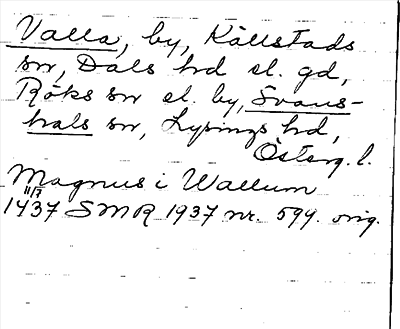 Valla, by, Källstads
sn, Dals hd el. gd,
Röks sn el. by, Svans-
hals sn, Lysings hd,
Österg. l.
Magnus i Wallum
11/7
1437 SMR 1937 nr. 599. orig.